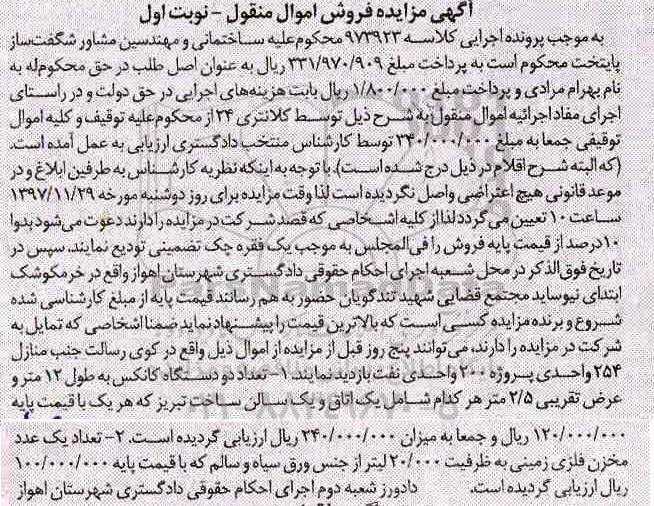 آگهی مزایده فروش اموال منقول - نوبت اول
به موجب پرونده اجرایی کلاسه ۹۷۳۹۲۳ محکوم‌علیه ساختمانی و مهندسین مشاور شگفت‌ساز
پایتخت محکوم است به پرداخت مبلغ ۳۳۱/۹۷۰/۹۰۹ ریال به عنوان اصل طلب در حق محکوم‌له به
نام بهرام مرادی و پرداخت مبلغ ۱/۸۰۰/۰۰۰ ریال بابت هزینه‌های اجرایی در حق دولت و در راستای
اجرای مفاد اجرائیه اموال منقول به شرح ذیل توسط کلانتری ۲۴ از محکوم‌علیه توقیف و کلیه اموال
توقیفی جمعا به مبلغ ۳۴۰/۰۰۰/۰۰۰ توسط کارشناس منتخب دادگستری ارزیابی به عمل آمده است.
(که البته شرح اقلام در ذیل درج شده است). با توجه به اینکه نظریه کارشناس به طرفین ابلاغ و در
موعد قانونی هیچ اعتراضی واصل نگردیده است لذا وقت مزایده برای روز دوشنبه مورخه ۱۳۹۷/۱۱/۲۹
ساعت ۱۰ تعیین می‌گردد لذا از کلیه اشخاصی که قصد شرکت در مزایده را دارند دعوت می‌شود بدوا
۱۰درصد از قیمت پایه فروش را فی‌المجلس به موجب یک فقره چک تضمینی تودیع نمایند، سپس در
تاریخ فوق‌الذکر در محل شعبه اجرای احکام حقوقی دادگستری شهرستان اهواز واقع در خرمکوشک
ابتدای نیوساید مجتمع قضایی شهید تندگویان حضور به هم رسانند قیمت پایه از مبلغ کارشناسی شده
شروع و برنده مزایده کسی است که بالاترین قیمت را پیشنهاد نماید ضمنا اشخاصی که تمایل به
شرکت در مزایده را دارند، می‌توانند پنج روز قبل از مزایده از اموال ذیل واقع در کوی رسالت جنب منازل
۲۵۴ واحدی پروژه ۲۰۰ واحدی نفت بازدید نمایند. ۱- تعداد دو دستگاه کانکس به طول ۱۲ متر و
عرض تقریبی ۲/۵ متر هر کدام شامل یک اتاق و یک سالن ساخت تبریز که هر یک با قیمت پایه
۱۲۰/۰۰۰/۰۰۰ ریال و جمعا به میزان ۲۴۰/۰۰۰/۰۰۰ ریال ارزیابی گردیده است. ۲- تعداد یک عدد
مخزن فلزی زمینی به ظرفیت ۲۰/۰۰۰ لیتر از جنس ورق سیاه و سالم که با قیمت پایه ۱۰۰/۰۰۰/۰۰۰
ریال ارزیابی گردیده است. دادورز شعبه دوم اجرای احکام حقوقی دادگستری شهرستان اهواز